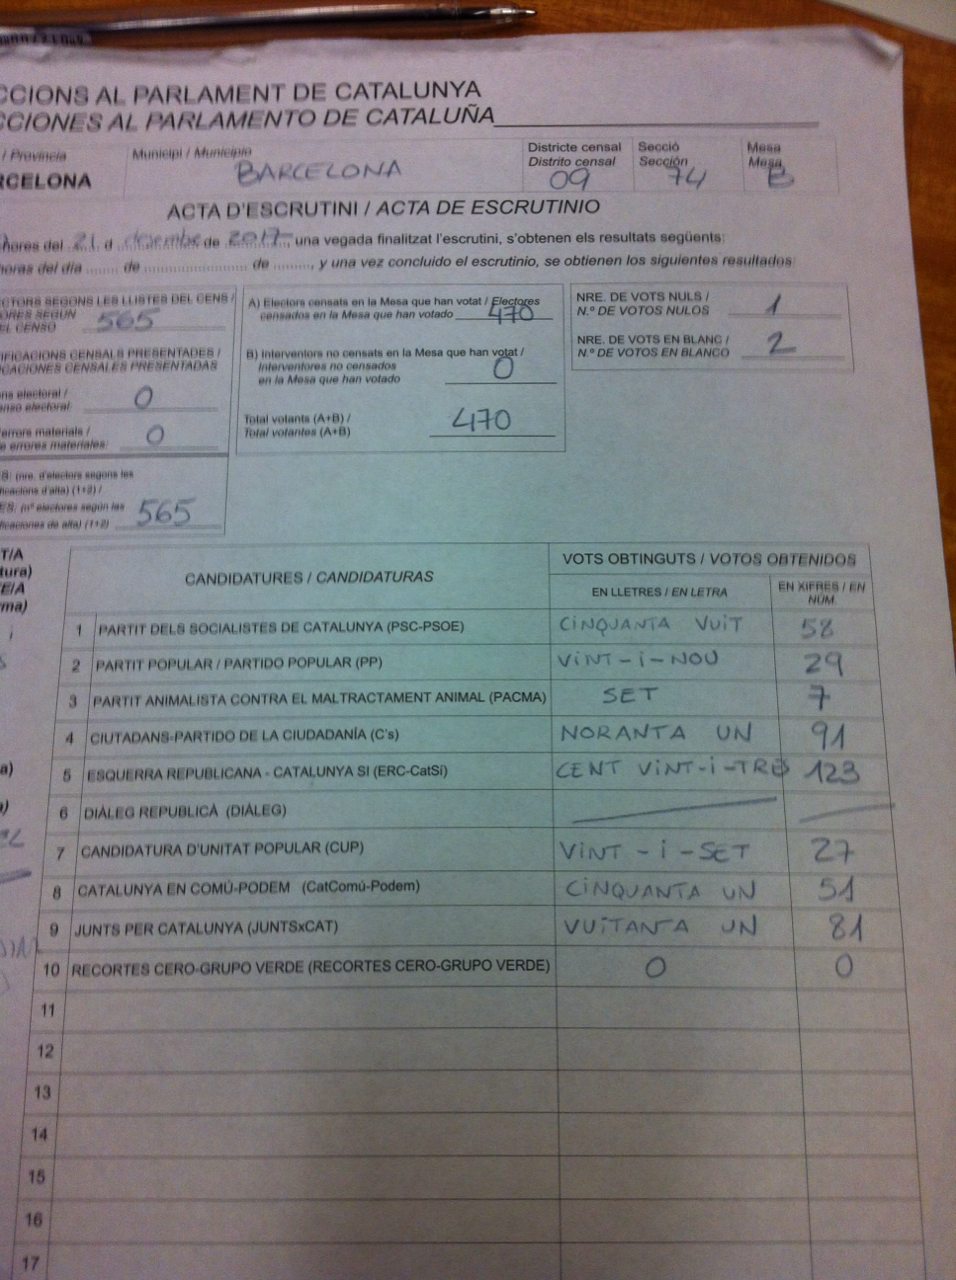 CCIONS AL PARLAMENT DE CATALUNYA
CCIONES AL PARLAMENTO DE CATALUÑA
/ Provincia Municipi / Municipio Districte censal Secció Mesa
Distrito censal Sección Mesa
RCELONA BARCELONA 09 74 B
ACTA D'ESCRUTINI / ACTA DE ESCRUTINIO
hores del 21 d desembre de 2017, una vegada finalitzat l'escrutini, s'obtenen els resultats següents:
horas del día ........ de ........................ de ........, y una vez concluido el escrutinio, se obtienen los siguientes resultados:
ECTORS SEGONS LES LLISTES DEL CENS /
ORES SEGÚN
EL CENSO 565
IFICACIONS CENSALS PRESENTADES /
CACIONES CENSALES PRESENTADAS
ns electoral /
enso electoral: 0
errors materials /
e errores materiales: 0
S: (nre. d'electors segons les
ficacions d'alta) (1+2) /
ES: (nº electores según las
ificaciones de alta) (1+2) 565
A) Electors censats en la Mesa que han votat / Electores
censados en la Mesa que han votado 470
B) Interventors no censats en la Mesa que han votat /
Interventores no censados
en la Mesa que han votado 0
Total votants (A+B) /
Total votantes (A+B) 470
NRE. DE VOTS NULS /
N.º DE VOTOS NULOS 1
NRE. DE VOTS EN BLANC /
N.º DE VOTOS EN BLANCO 2
T/A
tura)
E/A
ma)
CANDIDATURES / CANDIDATURAS VOTS OBTINGUTS / VOTOS OBTENIDOS
EN LLETRES / EN LETRA EN XIFRES / EN
NÚM.
1 PARTIT DELS SOCIALISTES DE CATALUNYA (PSC-PSOE) CINQUANTA VUIT 58
2 PARTIT POPULAR / PARTIDO POPULAR (PP) VINT-I-NOU 29
3 PARTIT ANIMALISTA CONTRA EL MALTRACTAMENT ANIMAL (PACMA) SET 7
4 CIUTADANS-PARTIDO DE LA CIUDADANÍA (C's) NORANTA UN 91
5 ESQUERRA REPUBLICANA - CATALUNYA SI (ERC-CatSí) CENT VINT-I-TRES 123
6 DIÀLEG REPUBLICÀ (DIÀLEG)
7 CANDIDATURA D'UNITAT POPULAR (CUP) VINT-I-SET 27
8 CATALUNYA EN COMÚ-PODEM (CatComú-Podem) CINQUANTA UN 51
9 JUNTS PER CATALUNYA (JUNTSxCAT) VUITANTA UN 81
10 RECORTES CERO-GRUPO VERDE (RECORTES CERO-GRUPO VERDE) 0 0
11
12
13
14
15
16
17